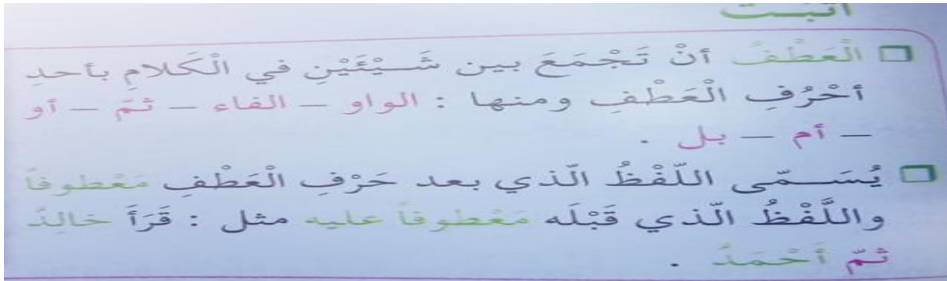 أثبت
الْعَطْفُ أنْ تَجْمَعَ بين شَــيْئَيْنِ في الْكَلامِ بأحدِ
أحْرُفِ الْعَطْفِ ومنها : الواو – الفاء – ثمّ – أو
– أم – بل .
يُسَــمّى اللّفْظُ الّذي بعد حَرْفِ الْعَطْفِ مَعْطوفاً
واللَّفْظُ الّذي قَبْلَه مَعْطوفاً عليه مثل : قَرَأَ خالِدٌ
ثمّ أحْمَدُ .